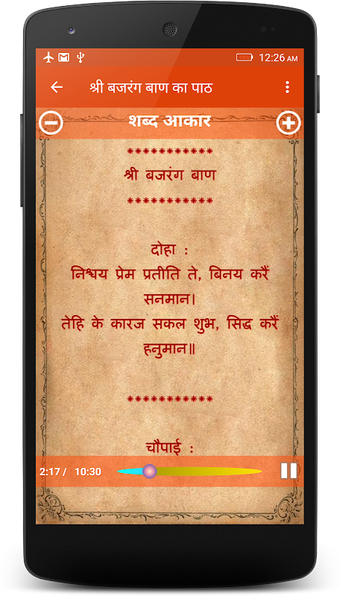 12:26 AM
श्री बजरंग बाण का पाठ
शब्द आकार
***********
श्री बजरंग बाण
***********
दोहा :
निश्चय प्रेम प्रतीति ते, बिनय करैं
सनमान।
तेहि के कारज सकल शुभ, सिद्ध करैं
हनुमान॥
***********
चौपाई :
2:17 / 10:30